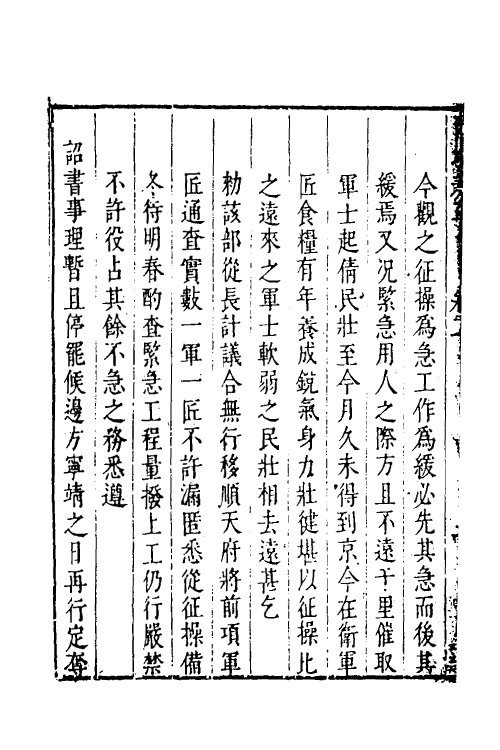 今觀之征操為急工作為緩必先其急而後其
緩焉又况緊急用人之際方且不遠千里催取
軍士起倩民壯至今月久未得到京今在衛軍
匠食糧有年養成銳氣身力壯健堪以征操比
之遠來之軍士軟弱之民壯相去遠甚乞
勑該部從長計議合無行移順天府將前項軍
匠通查實數一軍一匠不許漏匿悉從征操備
冬待明春酌查緊急工程量撥上工仍行嚴禁
不許役占其餘不急之務悉遵
詔書事理暫且停罷候邊方寧靖之日再行定奪